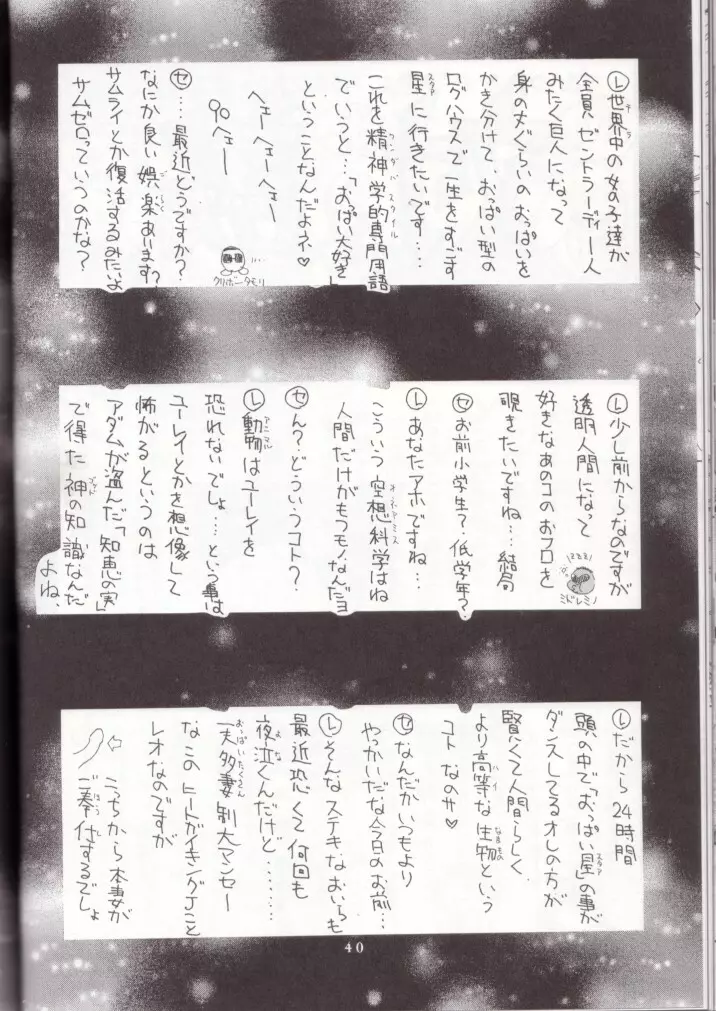 Ⓛ世界中の女の子達が
全員ゼントラーディー人
みたく巨人になって
身の丈ぐらいのおっぱいを
かき分けて、おっぱい型の
ログハウスで一生をすごす
星に行きたいです……
これを精神学的専門用語
でいうと…「おっぱい大好き」
ということなんだよネ♡
ヘェーヘェーヘェー
ヘェー
クリボータモリ
㋝…最近どうですか?
なにか良い娯楽あります?
サムライとか復活するみたいよ
サムゼロっていうのかな?
Ⓛ少し前からなのですが
透明人間になって
好きなあのコのおフロを
覗きたいですね…結局
ミドレミノ
㋝お前小学生?低学年?
Ⓛあなたアホですね…
こういう空想科学はね
人間だけがもつモノなんだヨ
㋝ん?どういうコト?
Ⓛ動物はユーレイを
恐れないでしょ…という事は
ユーレイとかを想像して
怖がるというのは
アダムが盗んだ「知恵の実」
で得た神の知識なんだ
よね、
Ⓛだから24時間
頭の中で「おっぱい星」の事が
ダンスしてるオレの方が
賢くて人間らしく
より高等な生物という
コトなのサ♡
㋝なんだかいつもより
やっかいだな今日のお前…
Ⓛそんなステキなおいらも
最近恐くて何回も
夜泣くんだけど………
一夫多妻制大マンセー
なこのヒートガイキングJこと
レオなのですが
こっちから本妻が
ご奉仕するでしょ
40